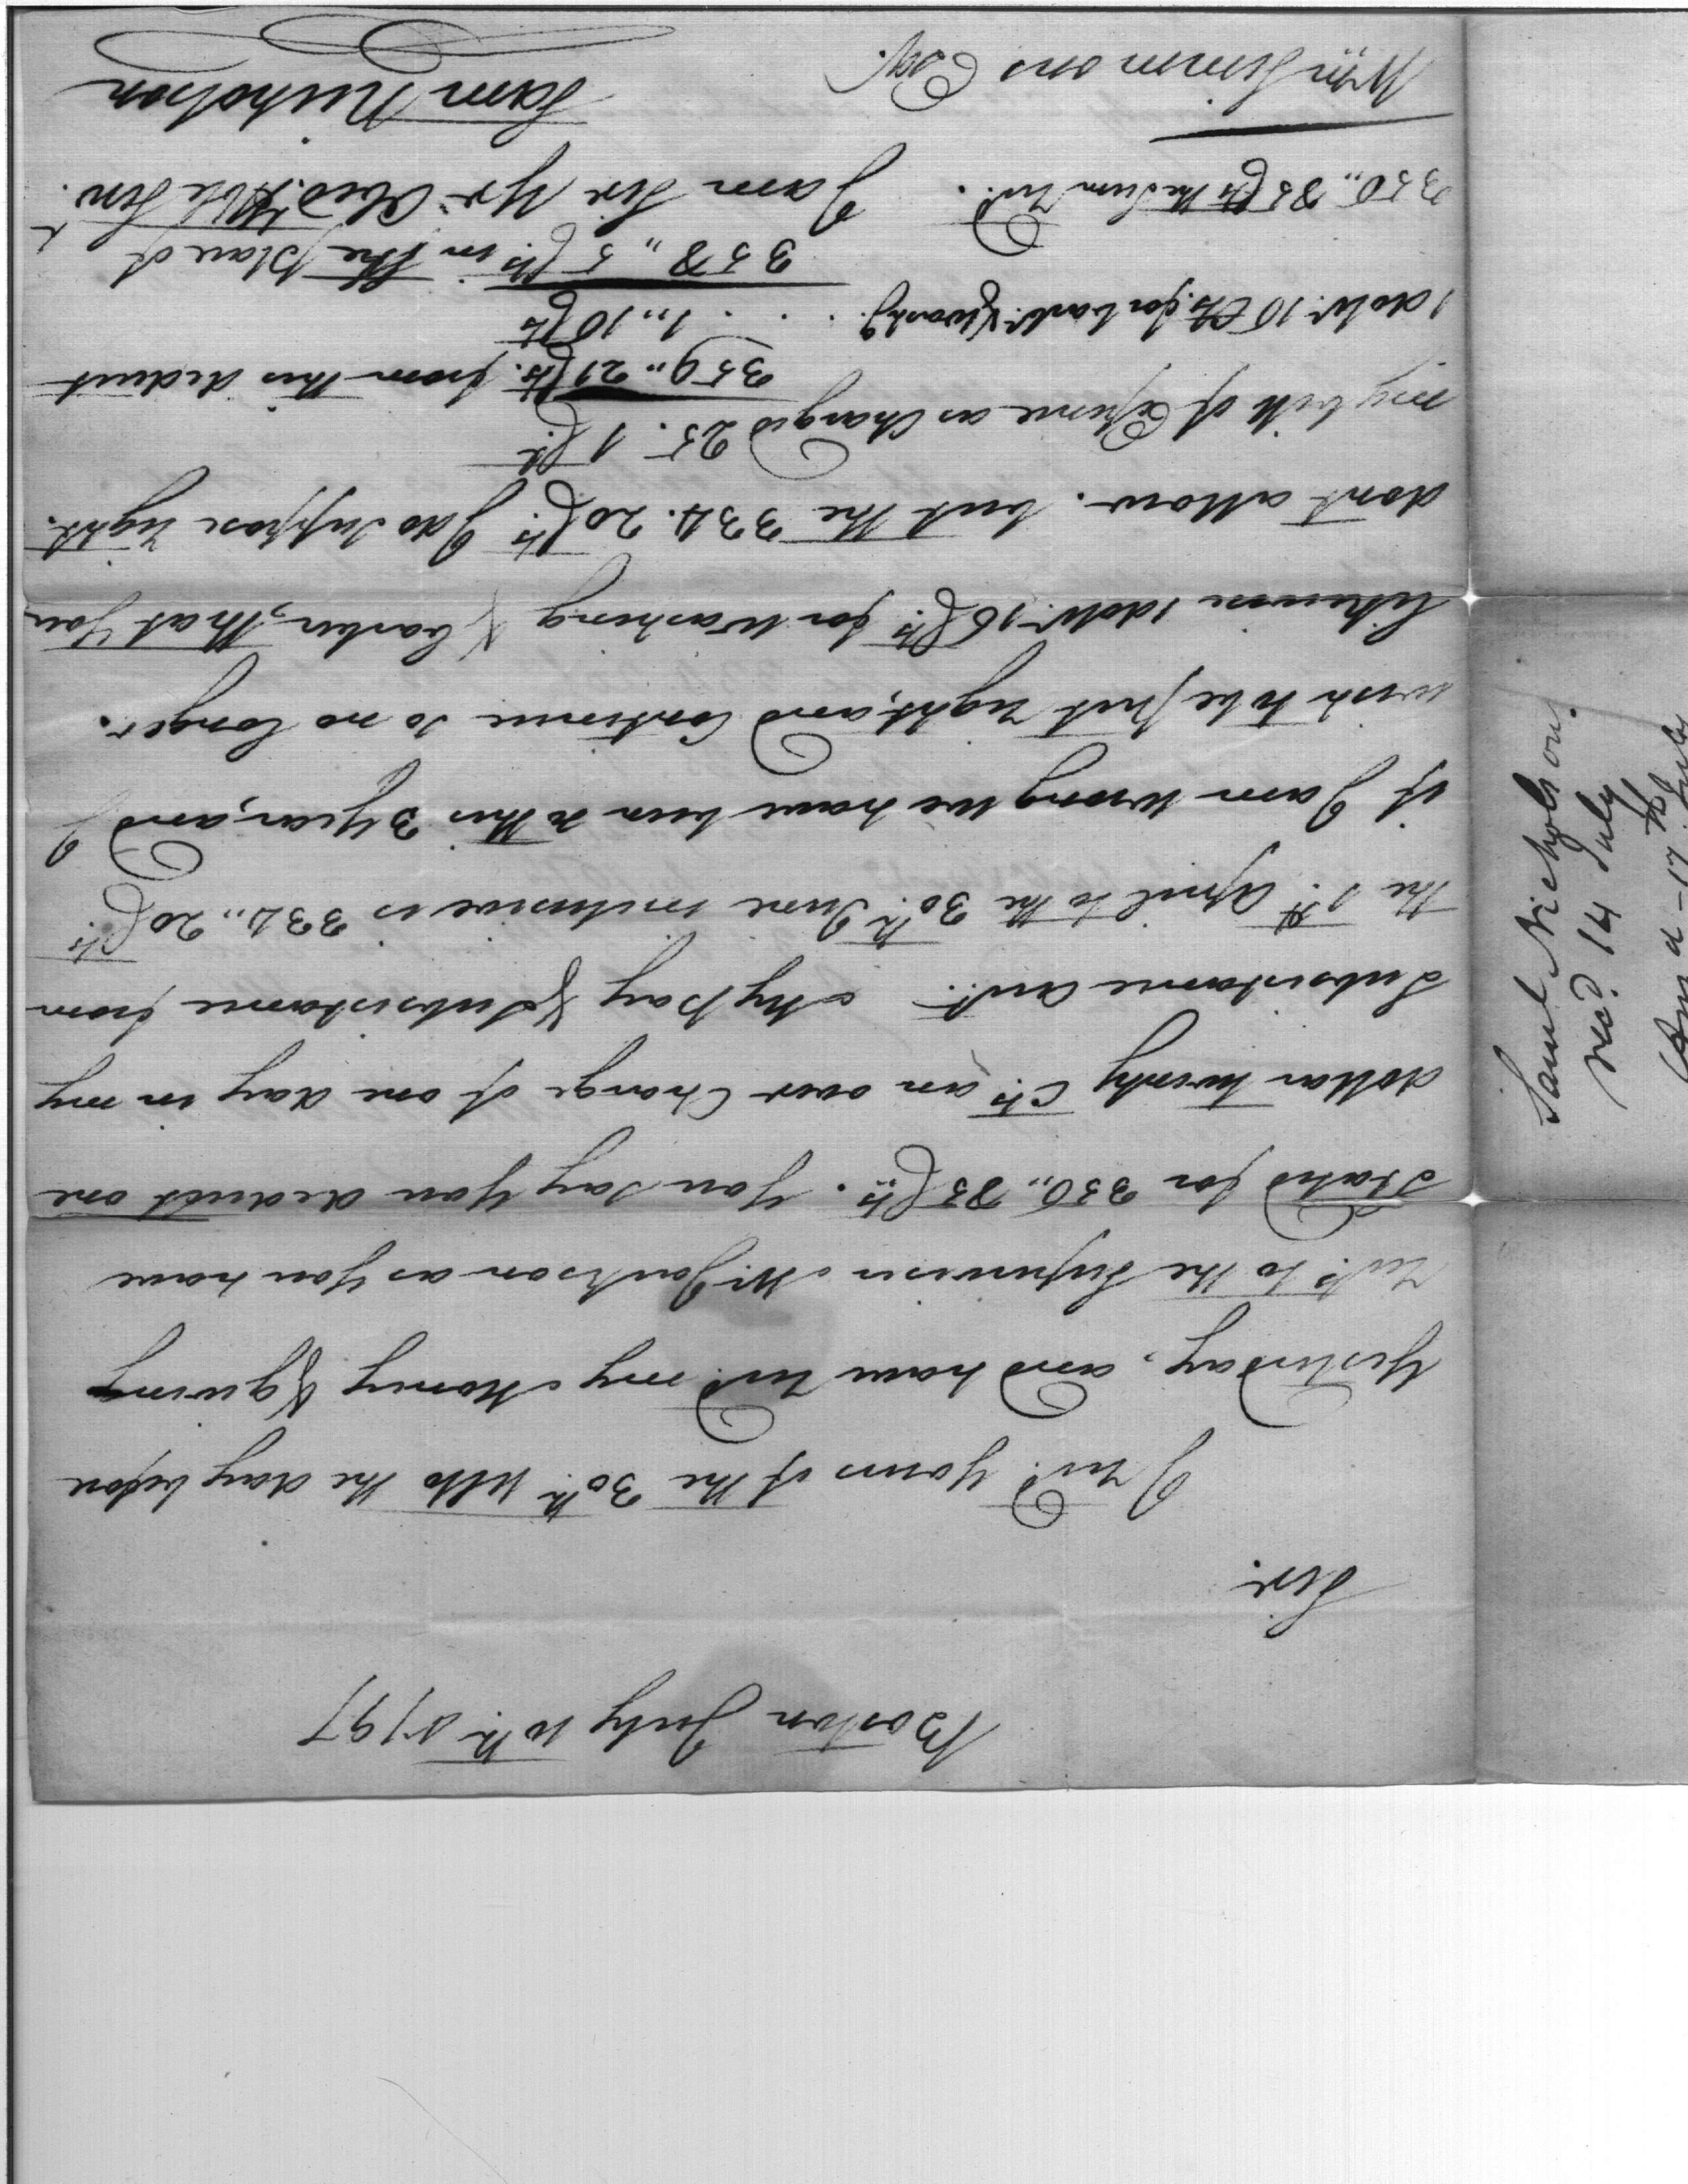 Boston July 10th. 1797
Sir.
I recd. yours of the 30th. Ulto the day before
Yesterday, and have recd my Money & giving
rects. to the Supervisor Mr. Jackson as you have
Stated for 350,, 85 Cts. You say you deduct one
dollar twenty Cts. an over Charge of one day in my
Subsistance Act. My Pay & Subsistance from
the 1st. April to the 30th. June inclusive is 334,, 20 Cts.
if I am wrong we have been so this 3 Years, and I
wish to be put right, and Continue so no longer.
Likewise 1 dollr. 16 Cts. for Washing & barber, that you
dont allow. but the 334. 20 Cts. I do suppose right.
my bill of Expence as Charged 25. 1 Ct.
359,, 21 Cts. from this deduct
1 dollr. 16 Cts. for barbr. & washg. . . . 1,, 16 Cts
358,, 5 Cts. in the place of
350,, 85 Cts the Sum recd. I am Sir Yr. Obed. Hble Servt.
Sam Nicholson
Wm. Simmons Esqr.
Saml Nicholson
recd. 14 July
17th. July